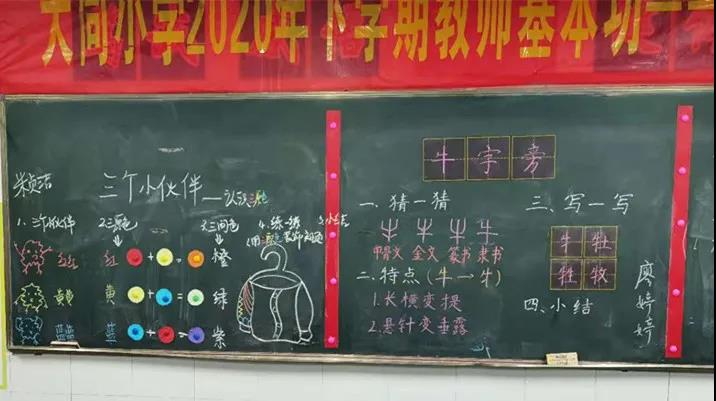 大同小学2020年下学期教师基本功
三个小伙伴—认识三原色
1.三个伙伴
2.三原色
3.三间色
4.练一练
5.小结
红红 红 + = 橙
黄黄 黄 + = 绿
蓝蓝 蓝 + = 紫
牛字旁
一、猜一猜
甲骨文 金文 篆书 隶书
二、特点(牛→牜)
1.长横变提
2.悬针变垂露
三、写一写
牛 牡
牲 牧
四、小结
廖婷婷